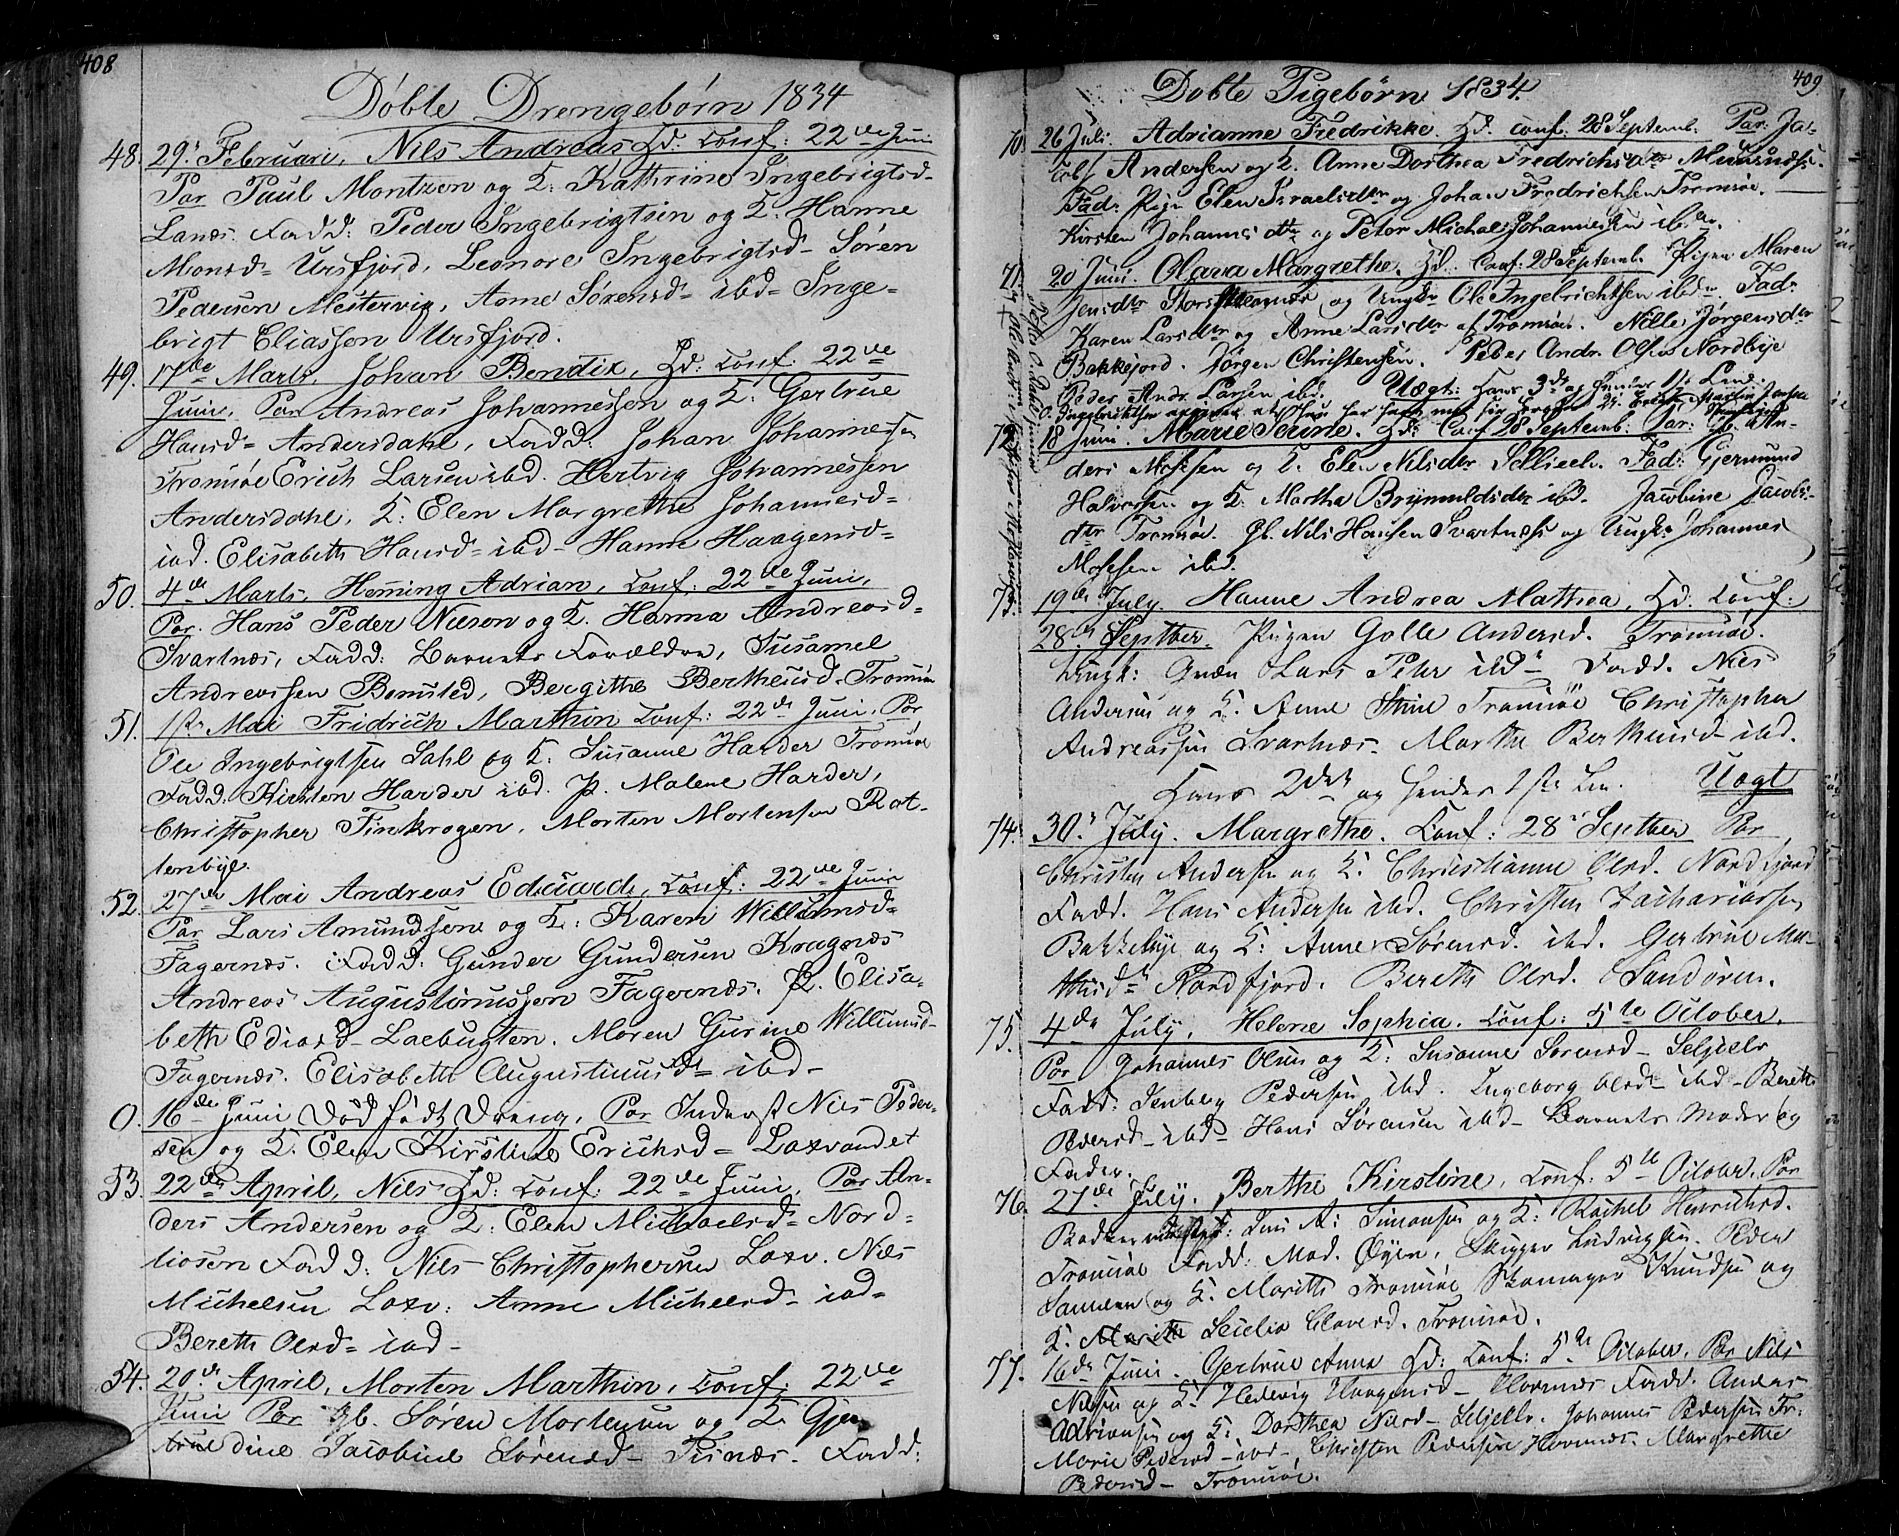 408
Döbte Drengebørn 1834
48. 29. Februari, Nils Andreas Hd: Conf: 22de Juni
Par Paul Montzen og K: Kathrine Ingebrigtsd-
Lanes. Fadd: Peder Ingebrigtsen og K: Hanne
Monsd= Ursfjord, Leonore Ingebrigtsd- Sören
Pedersen Mestervig, Anne Sörensd= ibd- Inge=
brigt Eliassen Ursfjord.
49. 17de Marts, Johan Bendix, Hd: Conf: 22de
Juni. Par Andreas Johannessen og K: Gertrue
Hansd= Andersdahl, Fadd: Johan Johannessen
Tromsöe Erich Larsen ibd. Hertvig Johannessen
Andersdahl, K: Elen Margrethe Johannesd=
ibd. Elisabeth Hansd= ibd- Hanne Haagensd=
50. 4de Marts, Heming Adrian, Conf: 22de Juni,
Par. Hans Peder Nilson og K. Hanna Andreasd=
Svartnæs, Fadd: Barnets Forældre, Susamel
Andreassen Bensted, Bergithe Bertheusd. Tromsöe
51. 1ste Mai Fridrich Marthin Conf: 22de Juni. Par
Ole Ingebrigtsen Dahl og K: Susanne Harder Tromsöe
Fadd. Kirsten Harder ibd. P. Malene Harder,
Christopher Finkrogen, Morten Mortensen Rot-
tenbye.
52. 27de Mai Andreas Eduard, Conf: 22de Juni
Par Lars Amundsen og K: Karen Willumsd=
Fagernæs. Fadd: Gunder Gundersen Kragnæs
Andreas Augustinussen Fagernæs. P. Elisa-
beth Ediasd- Laebugten. Maren Gurine Willumsd-
Fagernæs. Elisabeth Augustinusd= ibd-
0. 16de Juni Död födt Dreng, Par Inderst Nils Peder-
sen og K. Elen Kirstine Erichsd= Laxvandet
53. 22de April, Nils Hd: Conf: 22de Juni, Par An-
ders Andersen og K: Elen Michaelsd= Nord=
liosen Fadd: Nils Christophersen Laxv. Nils
Michelsen Laxv: Anne Michelsd- ibd=
Bereth Olesd= ibd-
54. 20de April, Morten Marthin, Conf: 22de
Juni Par Gb. Sören Mortensen og K. Gjer-
trudine Jacobine Sörensd- Tisnæs. Fadd:
409
Dobte Pigebörn 1834.
70. 26 Juli. Adrianne Fredrikke. Hd. conf: 28 Septemb. Par: Ja-
cob Andersen og K. Anne Dorthea Fredrichsdtr
Fad: Pige Elen Israelsdtr og Johan Fredrichsen Tromsöe.
Kirsten Johannesdtr og Peter Michael Johannessen ibd.
71. 20 Juni. Olava Margrethe. Hd. Conf: 28 Septemb. Pigen Maren
Jensdtr og Ungk: Ole Ingebrichtsen ibd. Fad:
Karen Larsdtr og Anne Larsdtr af Tromsöe. Nille Jörgensdtr
Bakkejord. Jörgen Christensen. Peder Andr. Olsen Nordbye
Peder Andr. Larsen ibd. Uægt: Hans 3de og hendes 1ste Leie.
72. 18 Juni. Marie Serine. Hd: Conf 28 Septemb: Par: Gb. An-
ders Mossen og K. Elen Nilsdtr Selljeelv. Fad: Gjermund
Halvorsen og K: Martha Brynnildsdtr ibd. Jacobine Jacobs-
dtr Tromsöe. Gb. Nils Hansen Svartnæs og Ungk: Johannes
Mossen ibd.
73. 19de July. Hanne Andrea Mathea, Hd: Conf:
28. Septber. Pigen Golle Andersd. Tromsöe.
Ungk: Qvæn Lars Peter ibd- Fadd. Nils
Andersen og K. Anne Stine Tromsöe Christopher
Andreassen Svartnæs- Marthe Bertheusd- ibd.
Hans 2det og hendes 1ste Lei. Uægt
74. 30. July. Margrethe. Conf: 28 Septber Par
Christen Andersen og K. Christianne Olesd. Nordfjord
Fadd. Hans Andersen ibd. Christen Zachariassen
Bakkebye og K: Anne Sörensd. ibd. Gertrue Ma-
thisd= Nordfjord. Bereth Olesd. Sandören.
75. 4de July, Helene Sophia. Conf: 5te October.
Par Johannes Olsen og K: Susanne Sörensd- Seljeelv
Fadd: Isenberg Pedersen ibd. Ingeborg Olesd- ibd- Bereth
Pedersd- ibd- Hans Sörensen ibd- Barnets Moder og
Fader.
76. 27de July. Berthe Kirstine, Conf: 5te October. Par
Jens A: Simonsen og K: Rachel Henrichsd.
Tromsöe Fadd: Mad. Öyen. Skipper Ludvigsen. Peder
Samuelsen og K. Marith Tromsöe Skomager Knudsen og
K: Secilia Olavesd. Tromsöe.
77. 16de Juni. Gertrue Anna Hd: Conf: 5te October. Par Nils
Nilsen og K. Hedevig Haagensd- Havnnæs Fadd. Anders
Adriansen og K: Dorthea Nilsd- Seljelv. Johannes Pedersen Tr:
Marie Pedersd- ibd- Christen Pedersen Havnnæs. Margrethe
Pedersd- Tromsöe.